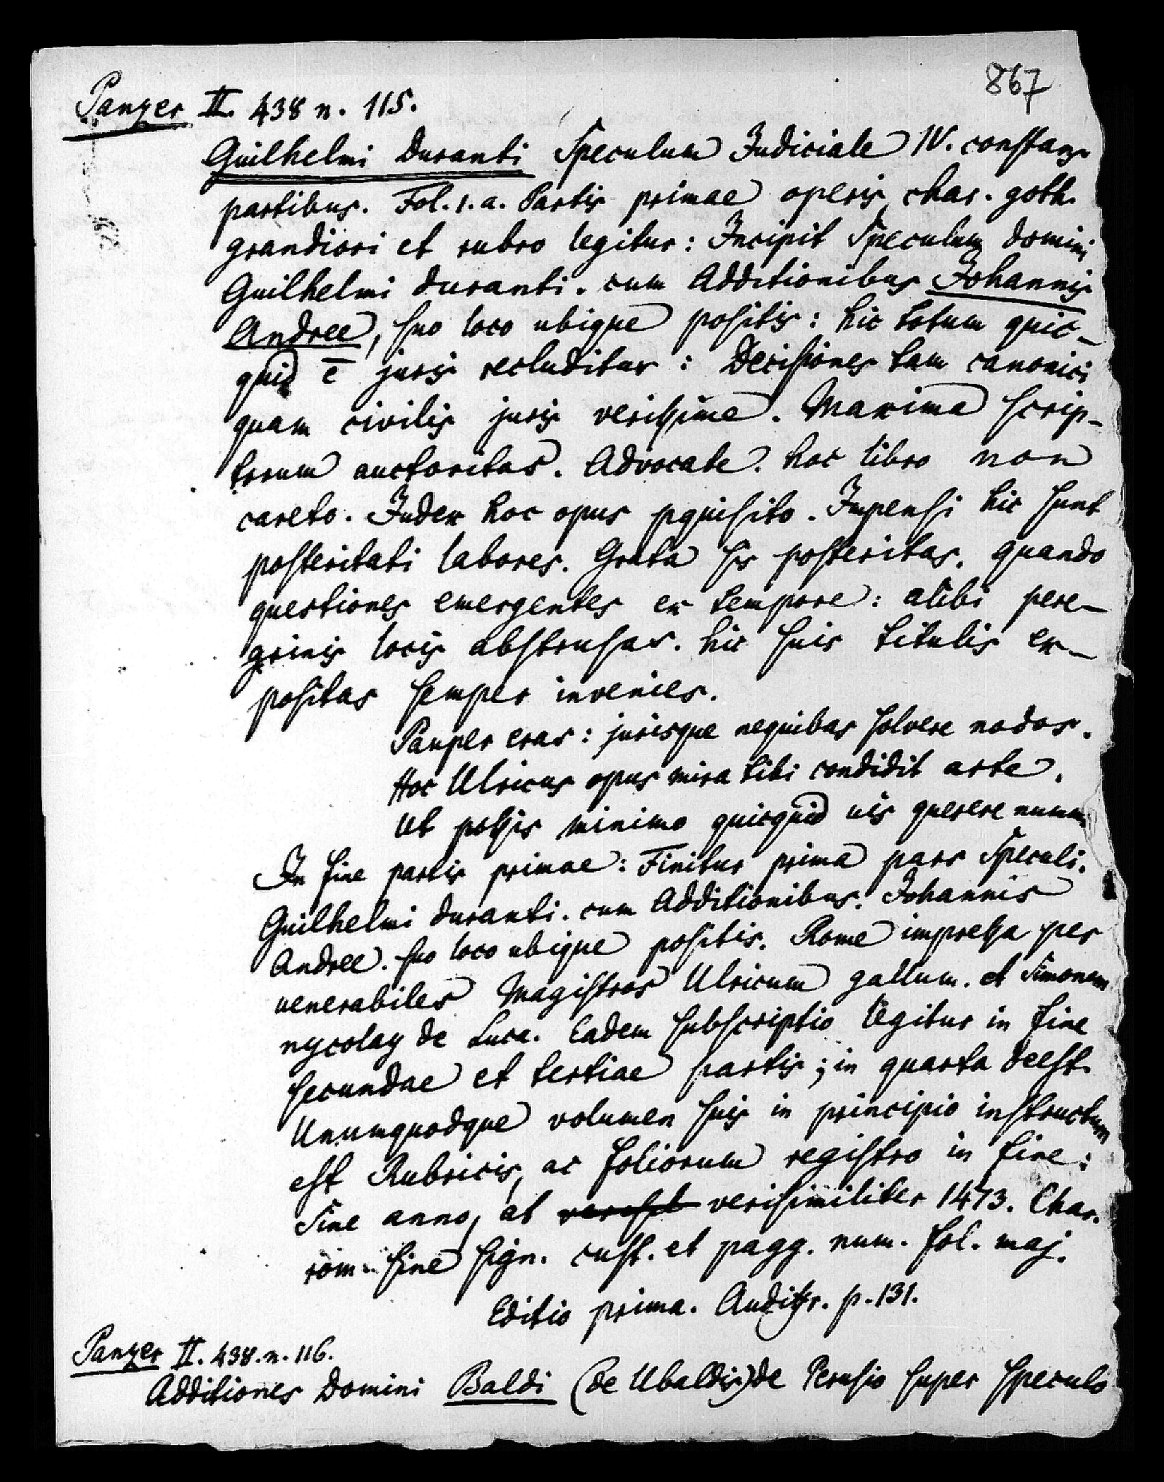 867
Panzer II. 438 n. 115.
Guilhelmi Duranti Speculum Judiciale IV. constans
partibus. Fol. 1. a. Partis primae operis, char. goth.
grandiori et rubro legitur: Incipit Speculum domini
Guilhelmi duranti. cum Additionibus Johannis
Andree, suo loco ubique positis: hic totum quic-
quid ē juris recluditur: Decisiones tam canonici
quam civilis juris verissime. Maxima scrip-
torum auctoritas. Advocate. hoc libro non
careto. Judex hoc opus pquisito. Impensi hic sunt
posteritati labores. Grata sis posteritas. quando
questiones emergentes ex tempore: alibi pere-
grinis locis abstrusas. hic suis titulis ex-
positas semper invenies.
Pauper eras: jurisque nequibas solvere nodos.
Hoc Ulricus opus mira tibi condidit arte.
Ut possis minimo quicquid uis querere nummo
In fine partis primae: Finitur prima pars Speculi.
Guilhelmi duranti. cum Additionibus. Johannis
Andree. suo loco ubique positis. Rome impressa per
uenerabiles Magistros Ulricum gallum. et Simonem
nycolay de Luca. Eadem subscriptio legitur in fine
secundae et tertiae partis; in quarta deest.
Unumquodque volumen suis in principio instructum
est Rubricis, ac foliorum registro in fine:
Sine anno, at verisimiliter 1473. Char.
rom. sine sign. cust. et pagg. num. fol. maj.
Editio prima. Audifr. p. 131.
Panzer II. 438. n. 116.
Additiones Domini Baldi (de Ubaldis) de Perusio super speculo